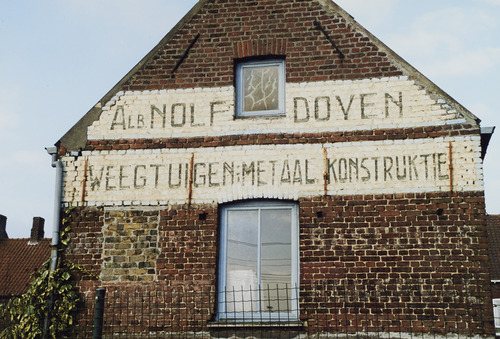 ALB NOLF DOYEN
WEEGTUIGEN·METAAL KONSTRUKTIE